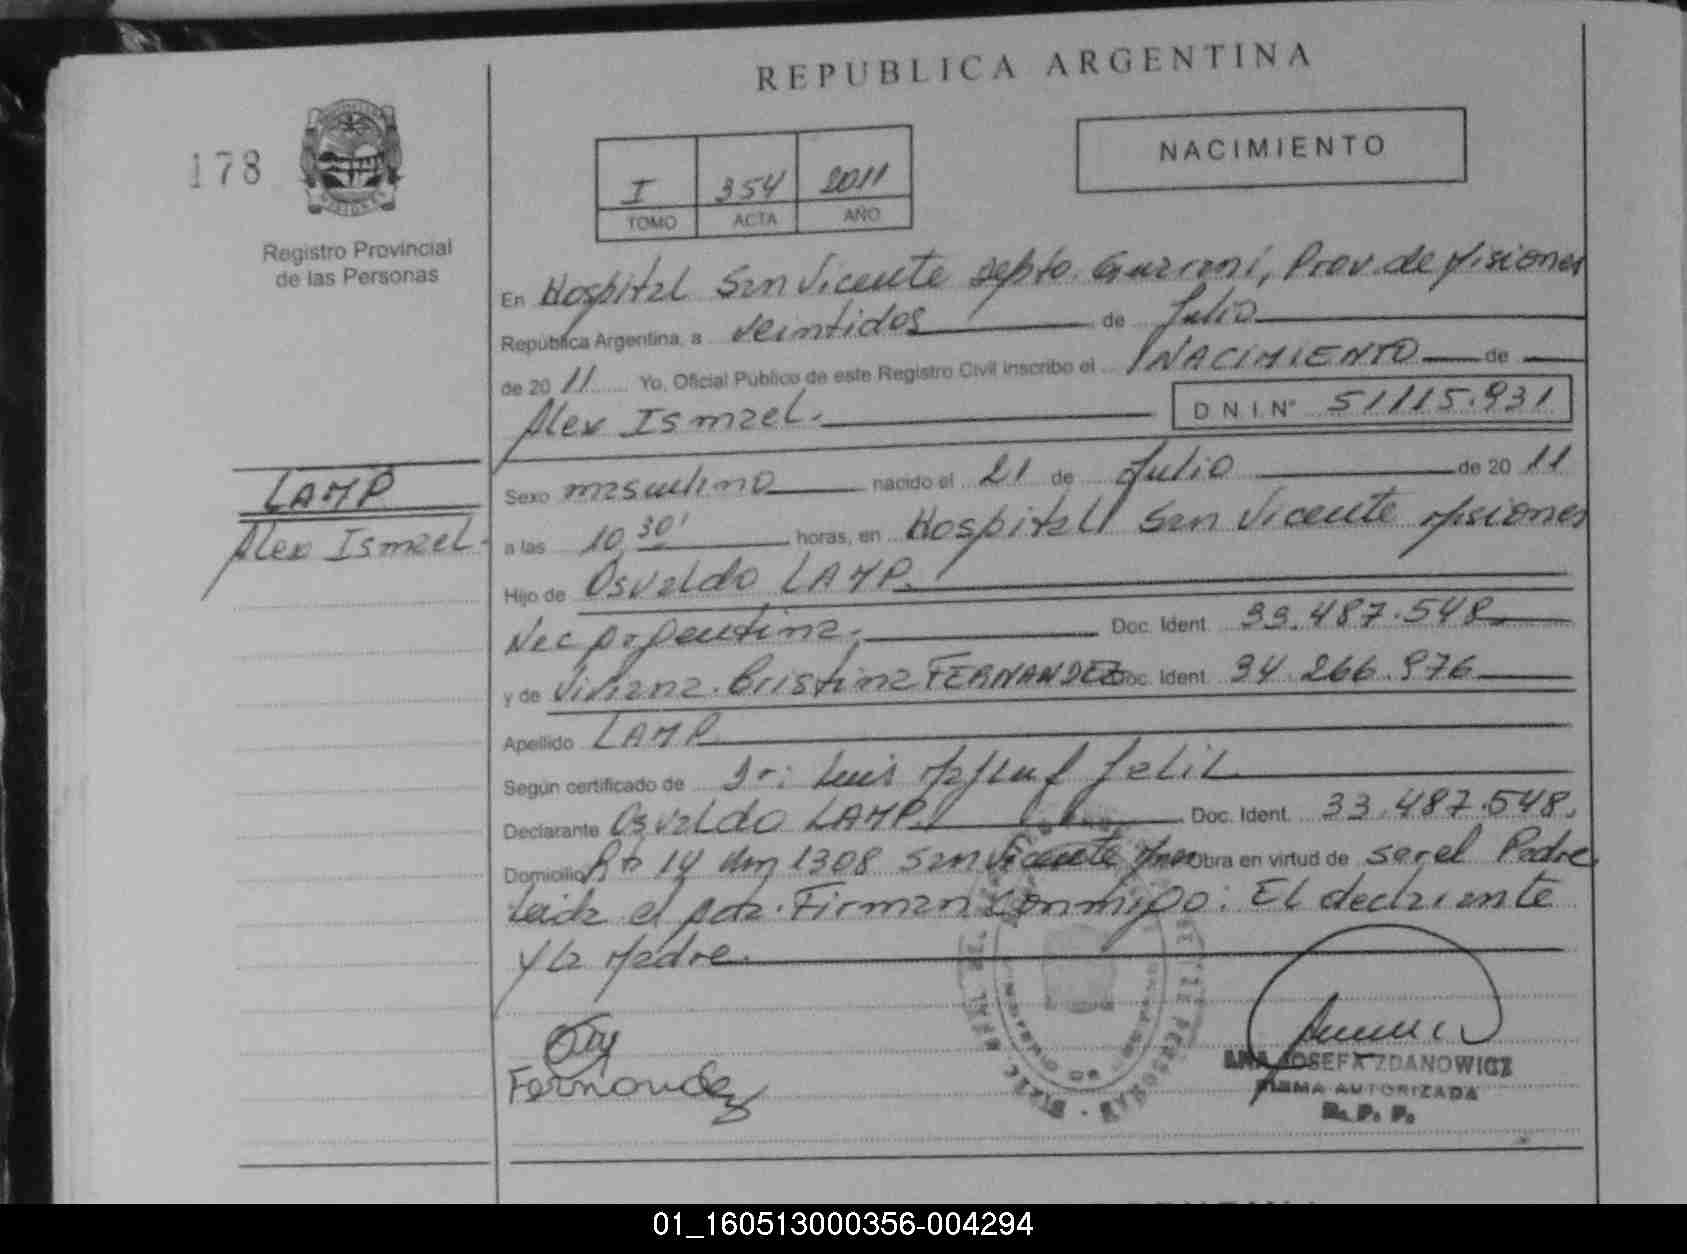 REPUBLICA ARGENTINA
178
NACIMIENTO
I 354 2011
TOMO ACTA AÑO
Registro Provincial
de las Personas
En Hospital San Vicente Depto. Guaraní, Prov. de Misiones
República Argentina, a veintidos de Julio
de 2011 Yo, Oficial Público de este Registro Civil inscribo el NACIMIENTO de
Alex Ismael. D.N.I. Nº 51115.931
LAMP
Alex Ismael.
Sexo masculino nacido el 21 de Julio de 2011
a las 10,30' horas, en Hospital San Vicente Misiones
Hijo de Osvaldo LAMP.
Nac Argentina. Doc. Ident. 33.487.548
y de Viviana Cristina FERNANDEZ Doc. Ident. 34.266.976
Apellido LAMP
Según certificado de Dr: Luis Jalil
Declarante Osvaldo LAMP Doc. Ident. 33.487.548.
Domicilio Rta 14 km 1308 San Vicente Obra en virtud de ser el Padre
Leida el Acta. Firman Conmigo: El declarante
y la Madre.
Fernandez
ANA JOSEFA ZDANOWICZ
FIRMA AUTORIZADA
R. P. P.
01_160513000356-004294